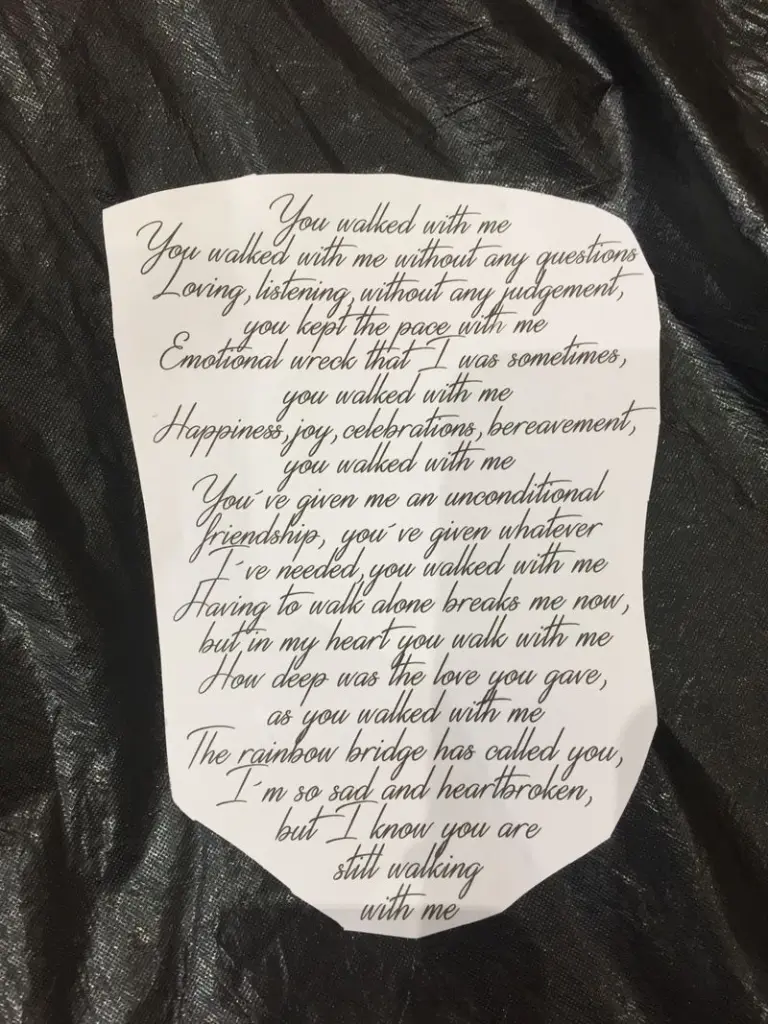 You walked with me
You walked with me without any questions
Loving, listening, without any judgement,
you kept the pace with me
Emotional wreck that I was sometimes,
you walked with me
Happiness, joy, celebrations, bereavement,
you walked with me
You´ve given me an unconditional
friendship, you´ve given whatever
I´ve needed, you walked with me
Having to walk alone breaks me now,
but in my heart you walk with me
How deep was the love you gave,
as you walked with me
The rainbow bridge has called you,
I´m so sad and heartbroken,
but I know you are
still walking
with me